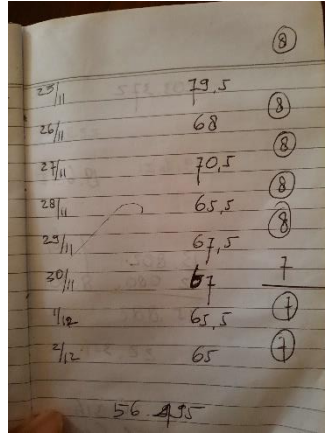 8
25/11 79,5
8
26/11 68
8
27/11 70,5
8
28/11 65,5
8
29/11 67,5
7
30/11 67
7
1/12 65,5
7
2/12 65
56.495